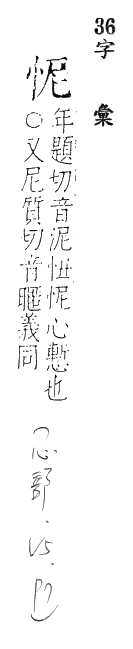 36字彙
怩
年題切音泥忸怩心慙也
○又尼質切音暱義同
(心部.